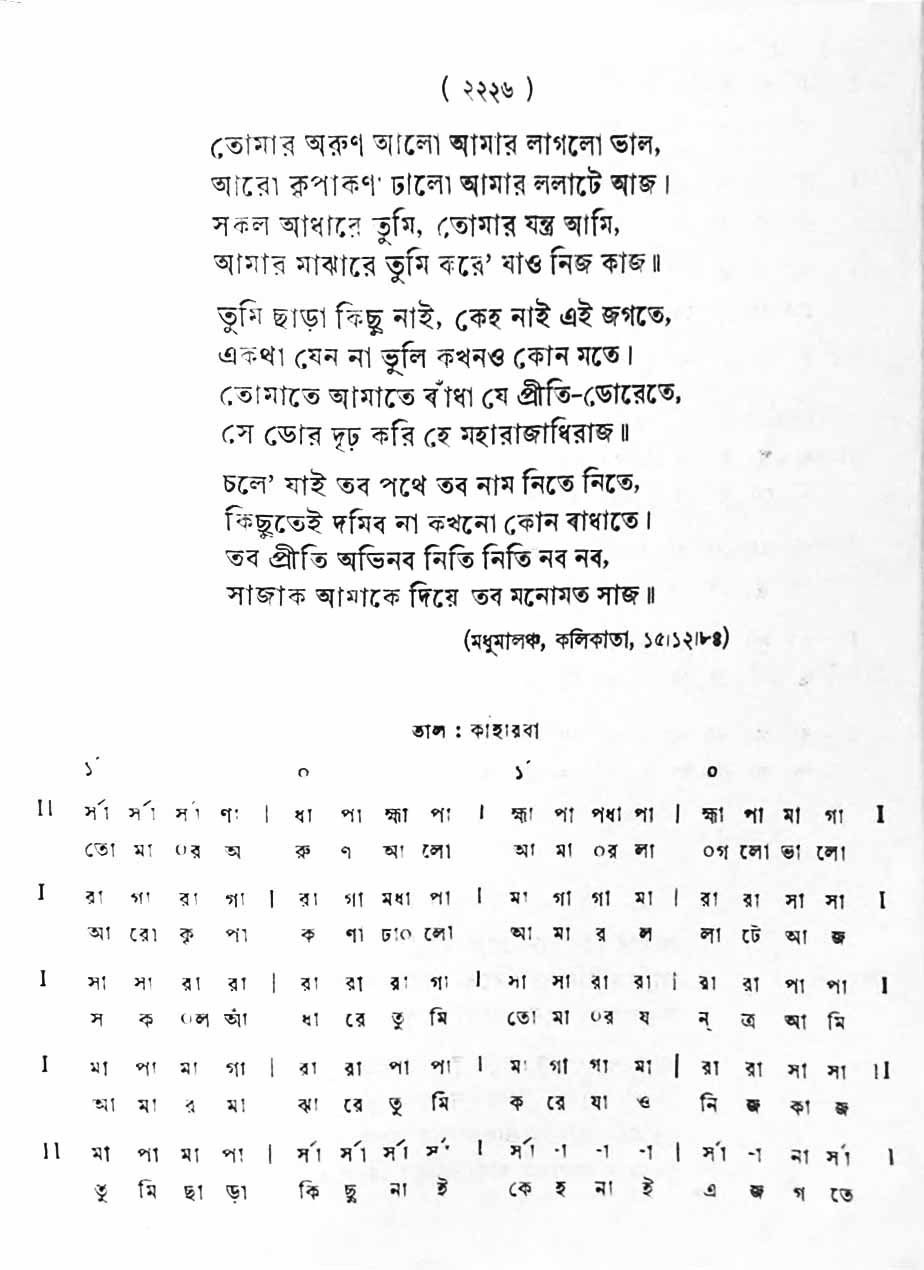 ( ২২২৬ )
তোমার অরুণ আলো আমার লাগলো ভাল,
আরো কৃপাকণা ঢালো আমার ললাটে আজ।
সকল আধারে তুমি, তোমার যন্ত্র আমি,
আমার মাঝারে তুমি করে' যাও নিজ কাজ॥
তুমি ছাড়া কিছু নাই, কেহ নাই এই জগতে,
একথা যেন না ভুলি কখনও কোন মতে।
তোমাতে আমাতে বাঁধা যে প্রীতি-ডোরেতে,
সে ডোর দৃঢ় করি হে মহারাজাধিরাজ॥
চলে' যাই তব পথে তব নাম নিতে নিতে,
কিছুতেই দমিব না কখনো কোন বাধাতে।
তব প্রীতি অভিনব নিতি নিতি নব নব,
সাজাক আমাকে দিয়ে তব মনোমত সাজ॥
(মধুমালঞ্চ, কলিকাতা, ১৫।১২।৮৪)
তাল : কাহারবা
১´ ০ ১´ ০
II র্সা র্সা র্সা ণা | ধা পা হ্মা পা I হ্মা পা পধা পা | হ্মা পা মা গা I
তো মা ০র অ রু ণ আ লো আ মা ০র লা ০গ লো ভা লো
I রা গা রা গা | রা গা মধা পা I মা গা গা মা | রা রা সা সা I
আ রো কৃ পা ক ণা ঢা০ লো আ মা র ল লা টে আ জ
I সা সা রা রা | রা রা রা গা I সা সা রা রা | রা রা পা পা I
স ক ০ল আঁ ধা রে তু মি তো মা ০র য ন্ ত্র আ মি
I মা পা মা গা | রা রা পা পা I মা গা গা মা | রা রা সা সা II
আ মা র মা ঝা রে তু মি ক রে যা ও নি জ কা জ
II মা পা মা পা | র্সা র্সা র্সা র্সা I র্সা -া -া -া | র্সা -া না র্সা I
তু মি ছা ড়া কি ছু না ই কে হ না ই এ জ গ তে